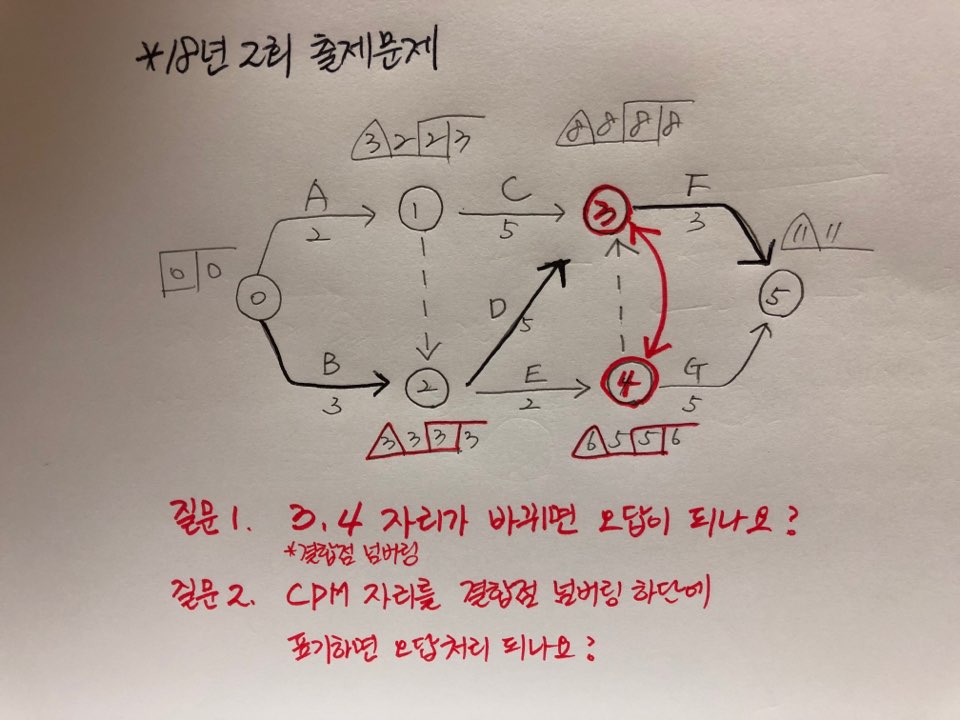 *18년 2회 출제문제
3 2 2 3
8 8 8 8
A
2
1
C
5
3
F
3
11 11
0 0
0
D
5
5
B
3
2
E
2
4
G
5
3 3 3 3
6 5 5 6
질문 1. 3.4 자리가 바뀌면 오답이 되나요?
*결합점 넘버링
질문 2. CPM 자리를 결합점 넘버링 하단에
표기하면 오답처리 되나요?